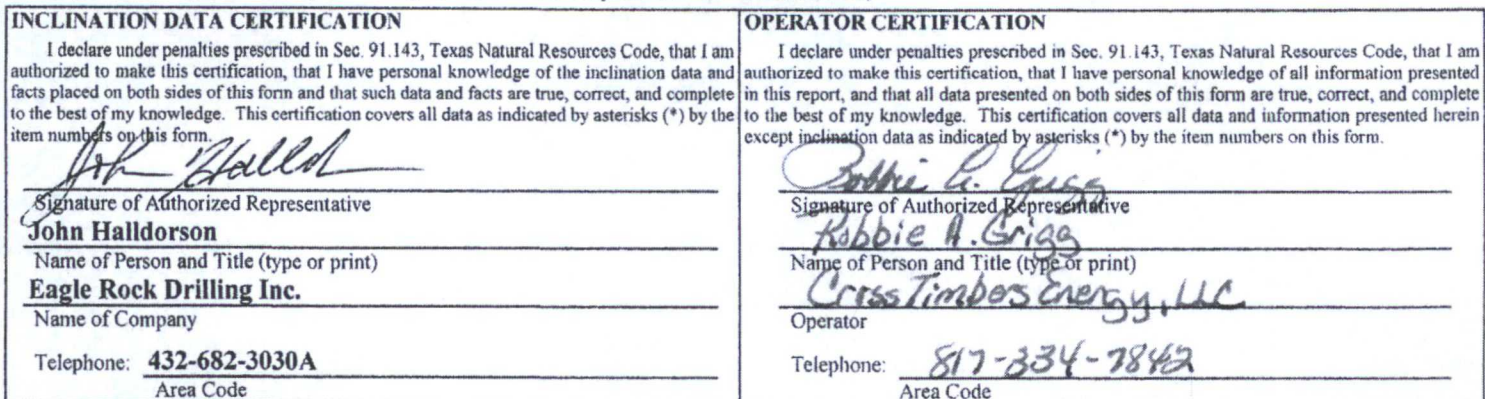 INCLINATION DATA CERTIFICATION
I declare under penalties prescribed in Sec. 91.143, Texas Natural Resources Code, that I am
authorized to make this certification, that I have personal knowledge of the inclination data and
facts placed on both sides of this form and that such data and facts are true, correct, and complete
to the best of my knowledge. This certification covers all data as indicated by asterisks (*) by the
item numbers on this form.
John Halldor
Signature of Authorized Representative
John Halldorson
Name of Person and Title (type or print)
Eagle Rock Drilling Inc.
Name of Company
Telephone: 432-682-3030A
Area Code
OPERATOR CERTIFICATION
I declare under penalties prescribed in Sec. 91.143, Texas Natural Resources Code, that I am
authorized to make this certification, that I have personal knowledge of all information presented
in this report, and that all data presented on both sides of this form are true, correct, and complete
to the best of my knowledge. This certification covers all data and information presented herein
except inclination data as indicated by asterisks (*) by the item numbers on this form.
Robbie A. Grigg
Signature of Authorized Representative
Robbie A. Grigg
Name of Person and Title (type or print)
Cross Timbers Energy, LLC
Operator
Telephone: 817-334-7842
Area Code